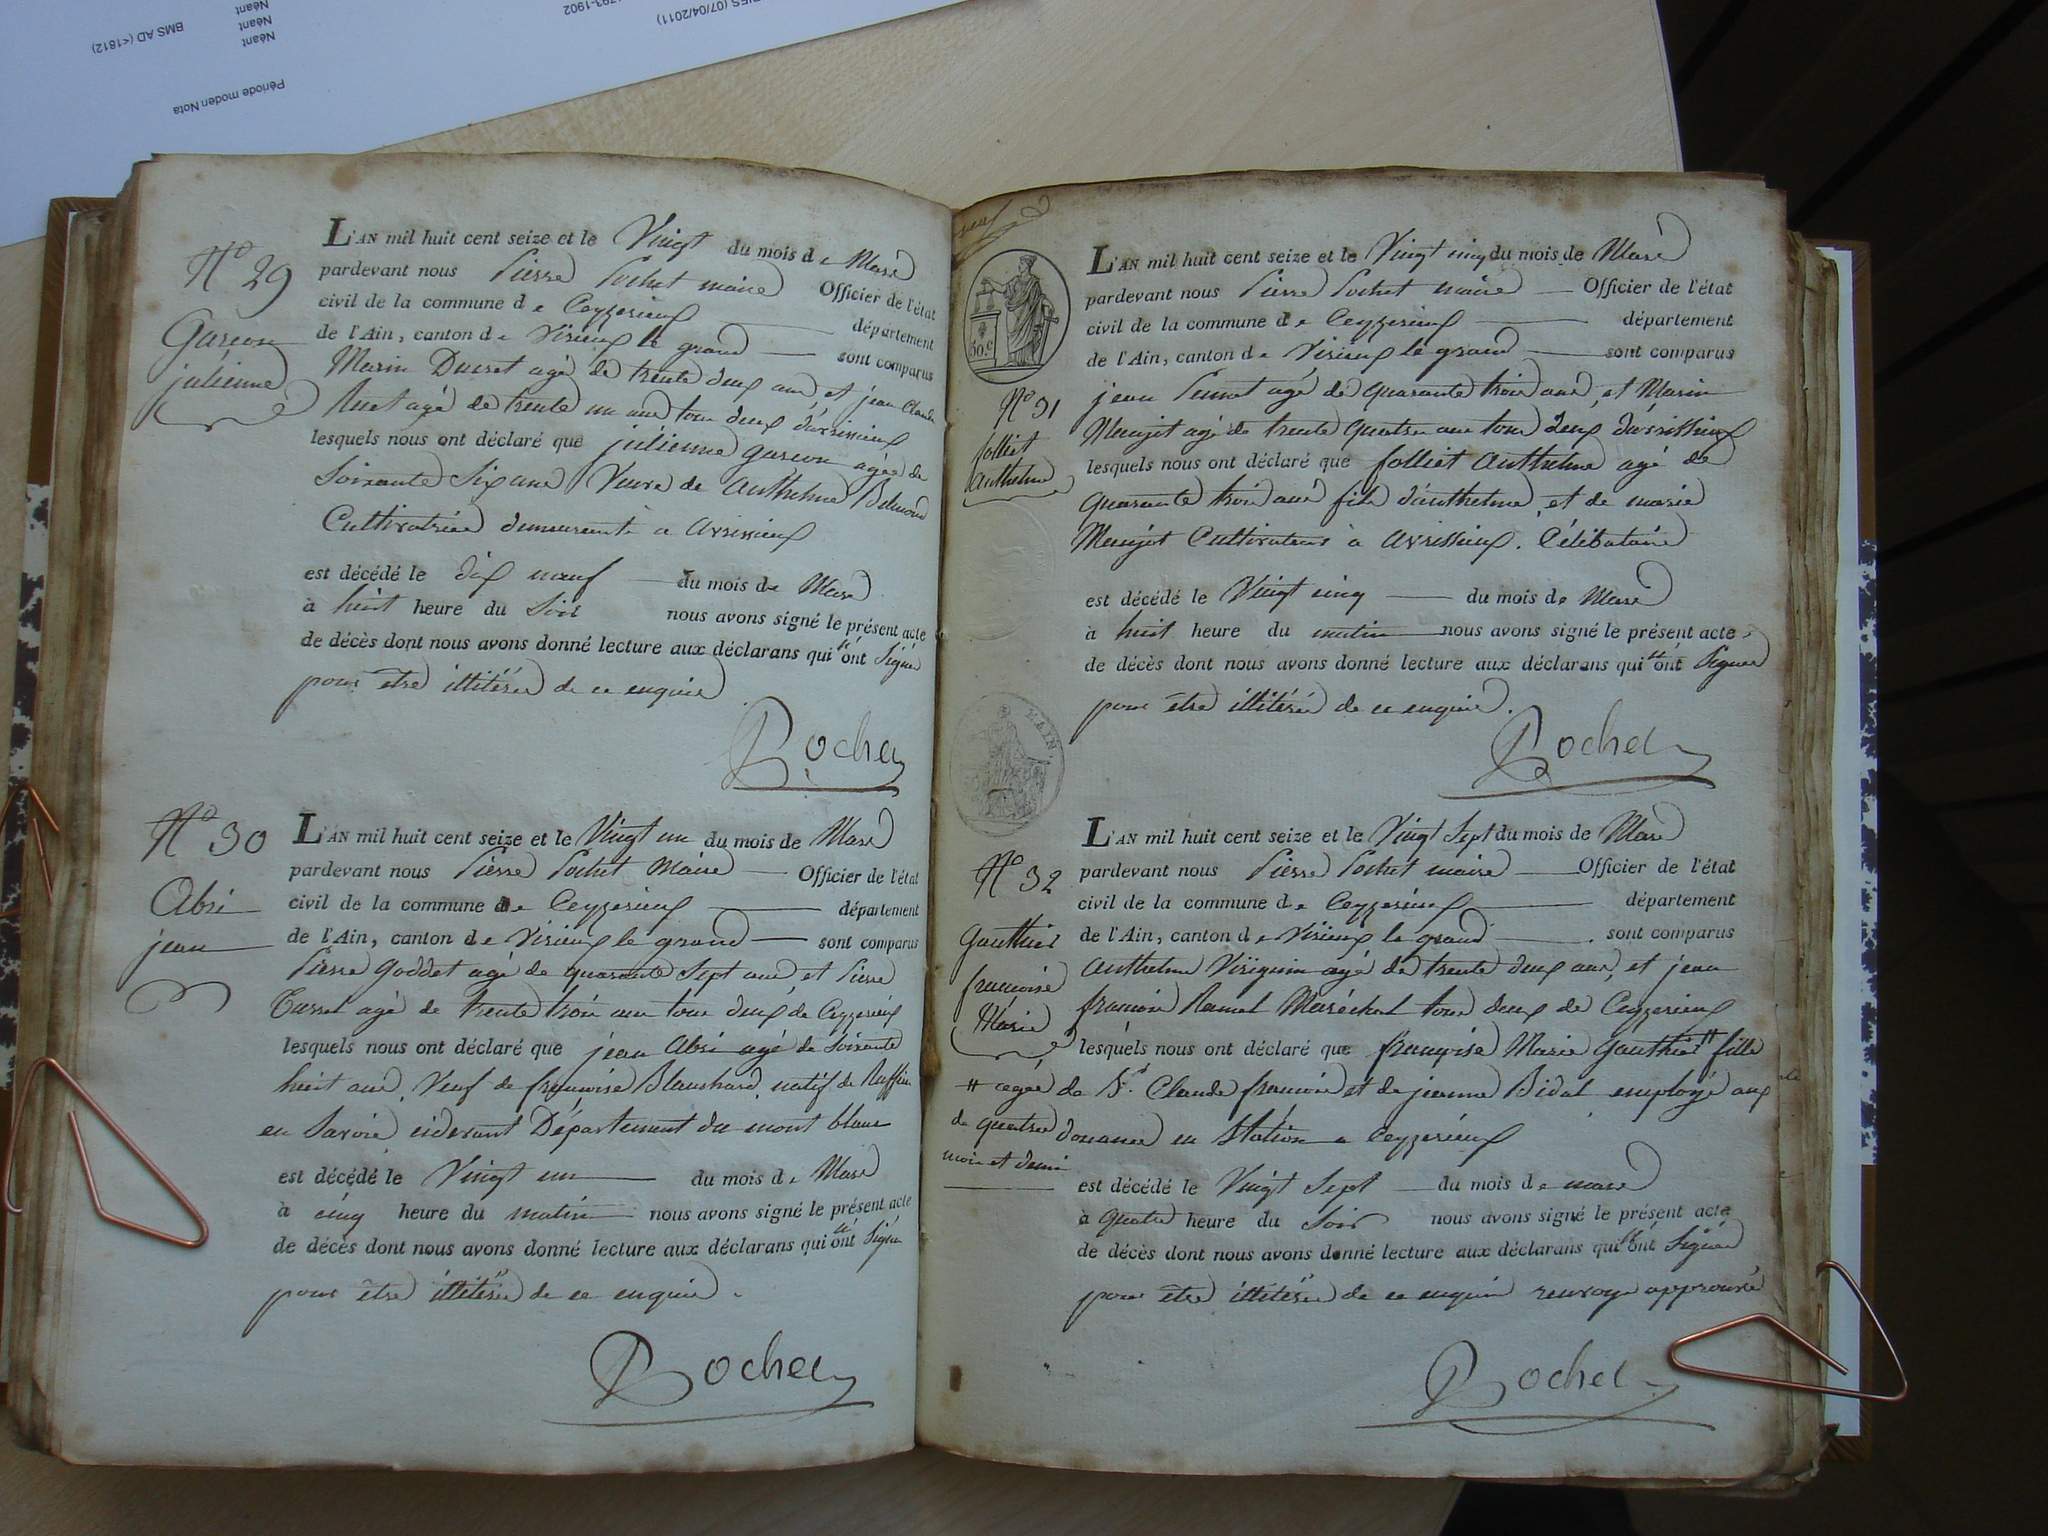 Période moden Nota
Néant
Néant
Néant
BMS AD (<1812)
(07/04/2011)
1793-1902
N.º 29
Garcon
julienne
L'AN mil huit cent seize et le Vingt du mois de Mars
pardevant nous Pierre Pochet maire Officier de l'état
civil de la commune de Ceyzerieux département
de l'Ain, canton de Virieux le grand sont comparus
Marin Ducret agé de trente deux ans, et jean Claude
agé de trente un ans tous deux d'avrissieux
lesquels nous ont déclaré que julienne garcon agée de
Soixante Six ans Veuve de Anthelme Belmond
Cultivatrice demeurant a avrissieux
est décédé le dix neuf du mois de Mars
à huit heure du Soir nous avons signé le présent acte
de décès dont nous avons donné lecture aux déclarans qui n'ont Signé
pour être illitéré de ce enquis
Pochet
N.º 30
Abri
jean
L'AN mil huit cent seize et le Vingt un du mois de Mars
pardevant nous Pierre Pochet Maire Officier de l'état
civil de la commune de Ceyzerieux département
de l'Ain, canton de Virieux le grand sont comparus
Pierre Goddet agé de quarante Sept ans et Pierre
agé de trente trois ans tous deux de Ceyzerieux
lesquels nous ont déclaré que jean Abri agé de Soixante
huit ans, Veuf de françoise Blanchard, natif de Ruffieu
en Savoie cidevant Département du mont blanc
est décédé le Vingt un du mois de Mars
à cinq heure du matin nous avons signé le présent acte
de décès dont nous avons donné lecture aux déclarans qui n'ont Signé
pour être illitéré de ce enquis.
Pochet
50.c
N.º 31
folliet
Anthelme
L'AN mil huit cent seize et le Vingt cinq du mois de Mars
pardevant nous Pierre Pochet maire Officier de l'état
civil de la commune de Ceyzerieux département
de l'Ain, canton de Virieux le grand sont comparus
jean agé de quarante trois ans, et Marin
agé de trente quatre ans tous deux d'avrissieux
lesquels nous ont déclaré que folliet Anthelme agé de
quarante trois ans fils d'anthelme, et de marie
Cultivateurs à avrissieux. Célibataire
est décédé le Vingt cinq du mois de Mars
à huit heure du matin nous avons signé le présent acte
de décès dont nous avons donné lecture aux déclarans qui n'ont Signé
pour être illitéré de ce enquis.
Pochet
L'AIN
N.º 32
Gauthier
françoise
Marie
L'AN mil huit cent seize et le Vingt Sept du mois de Mars
pardevant nous Pierre Pochet maire Officier de l'état
civil de la commune de Ceyzerieux département
de l'Ain, canton de Virieux le grand sont comparus
Anthelme agé de trente deux ans, et jean
françois Ramel Maréchal tous deux de Ceyzerieux
lesquels nous ont déclaré que françoise Marie Gauthier # fille
# agée de quatre mois et demi
de Sr. Claude françois et de jeanne Bidal employé aux
douanes en Station a Ceyzerieux
est décédé le Vingt Sept du mois de mars
à quatre heure du Soir nous avons signé le présent acte
de décès dont nous avons donné lecture aux déclarans qui n'ont Signé
pour être illitéré de ce enquis renvoye approuvé
Pochet